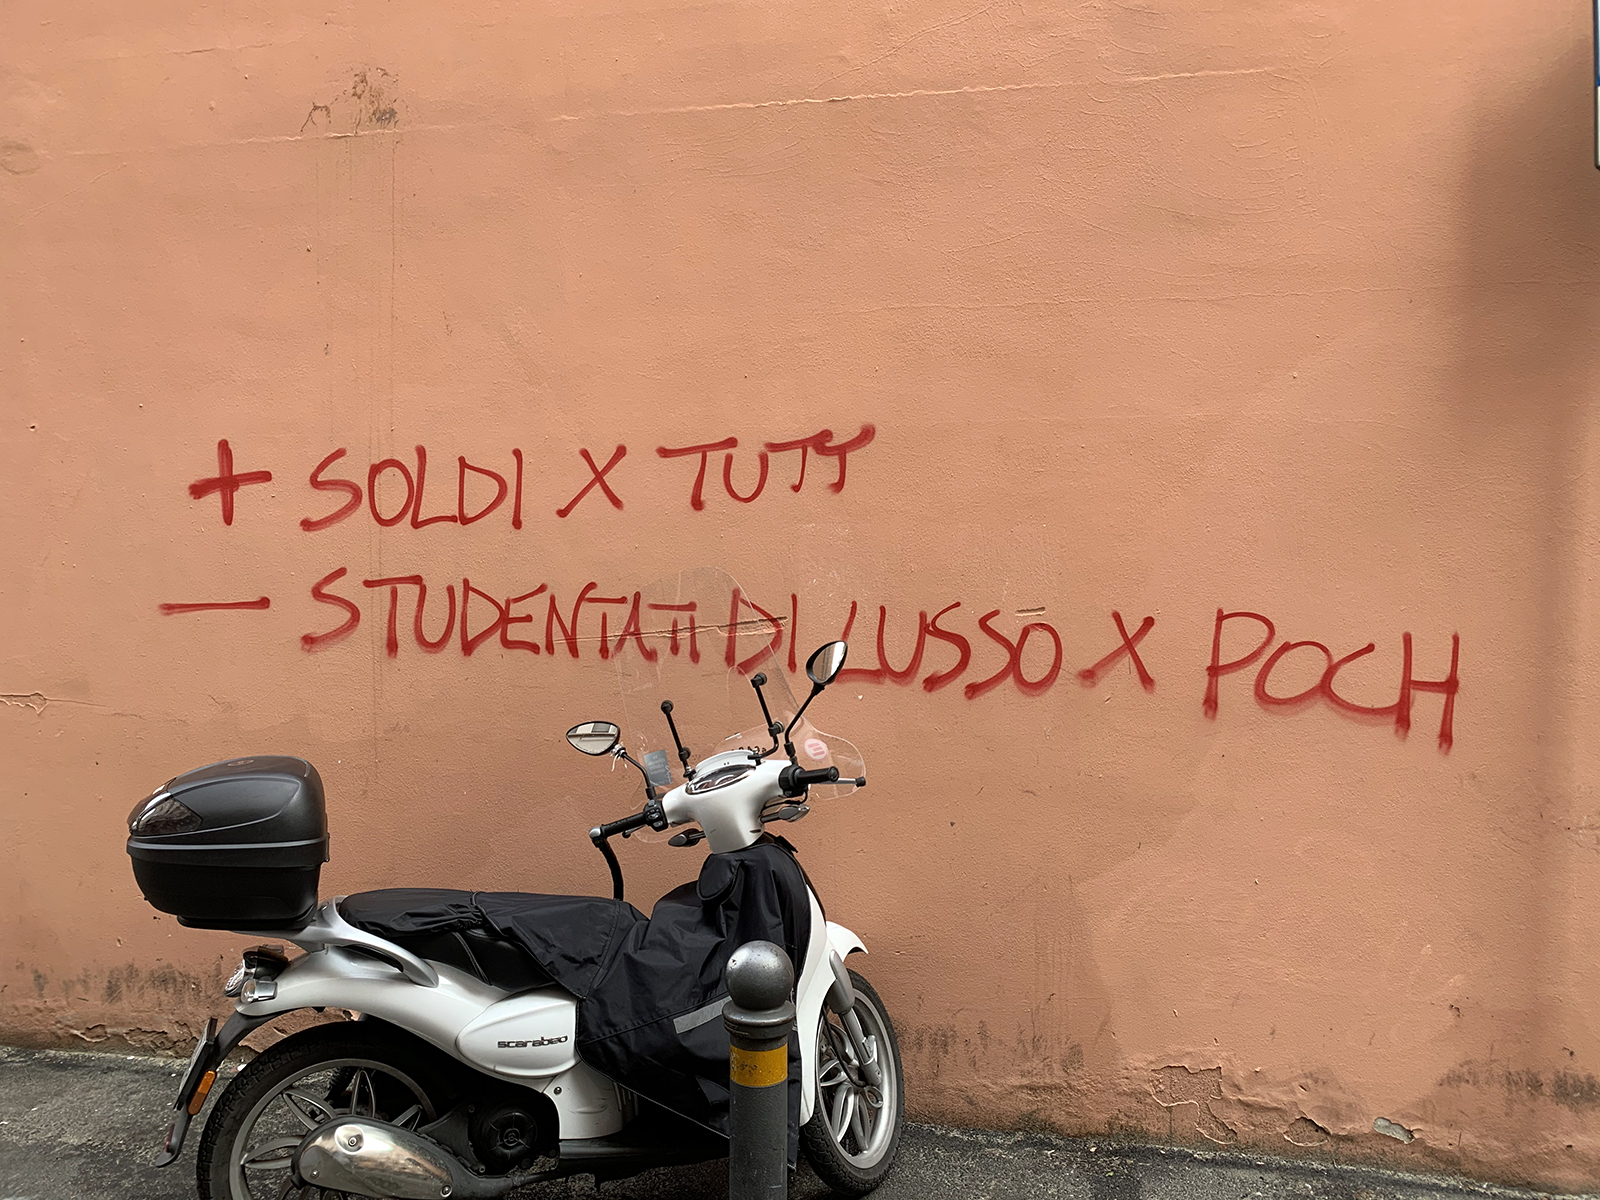 + SOLDI X TUTTI
- STUDENTATI DI LUSSO X POCH
scarabeo